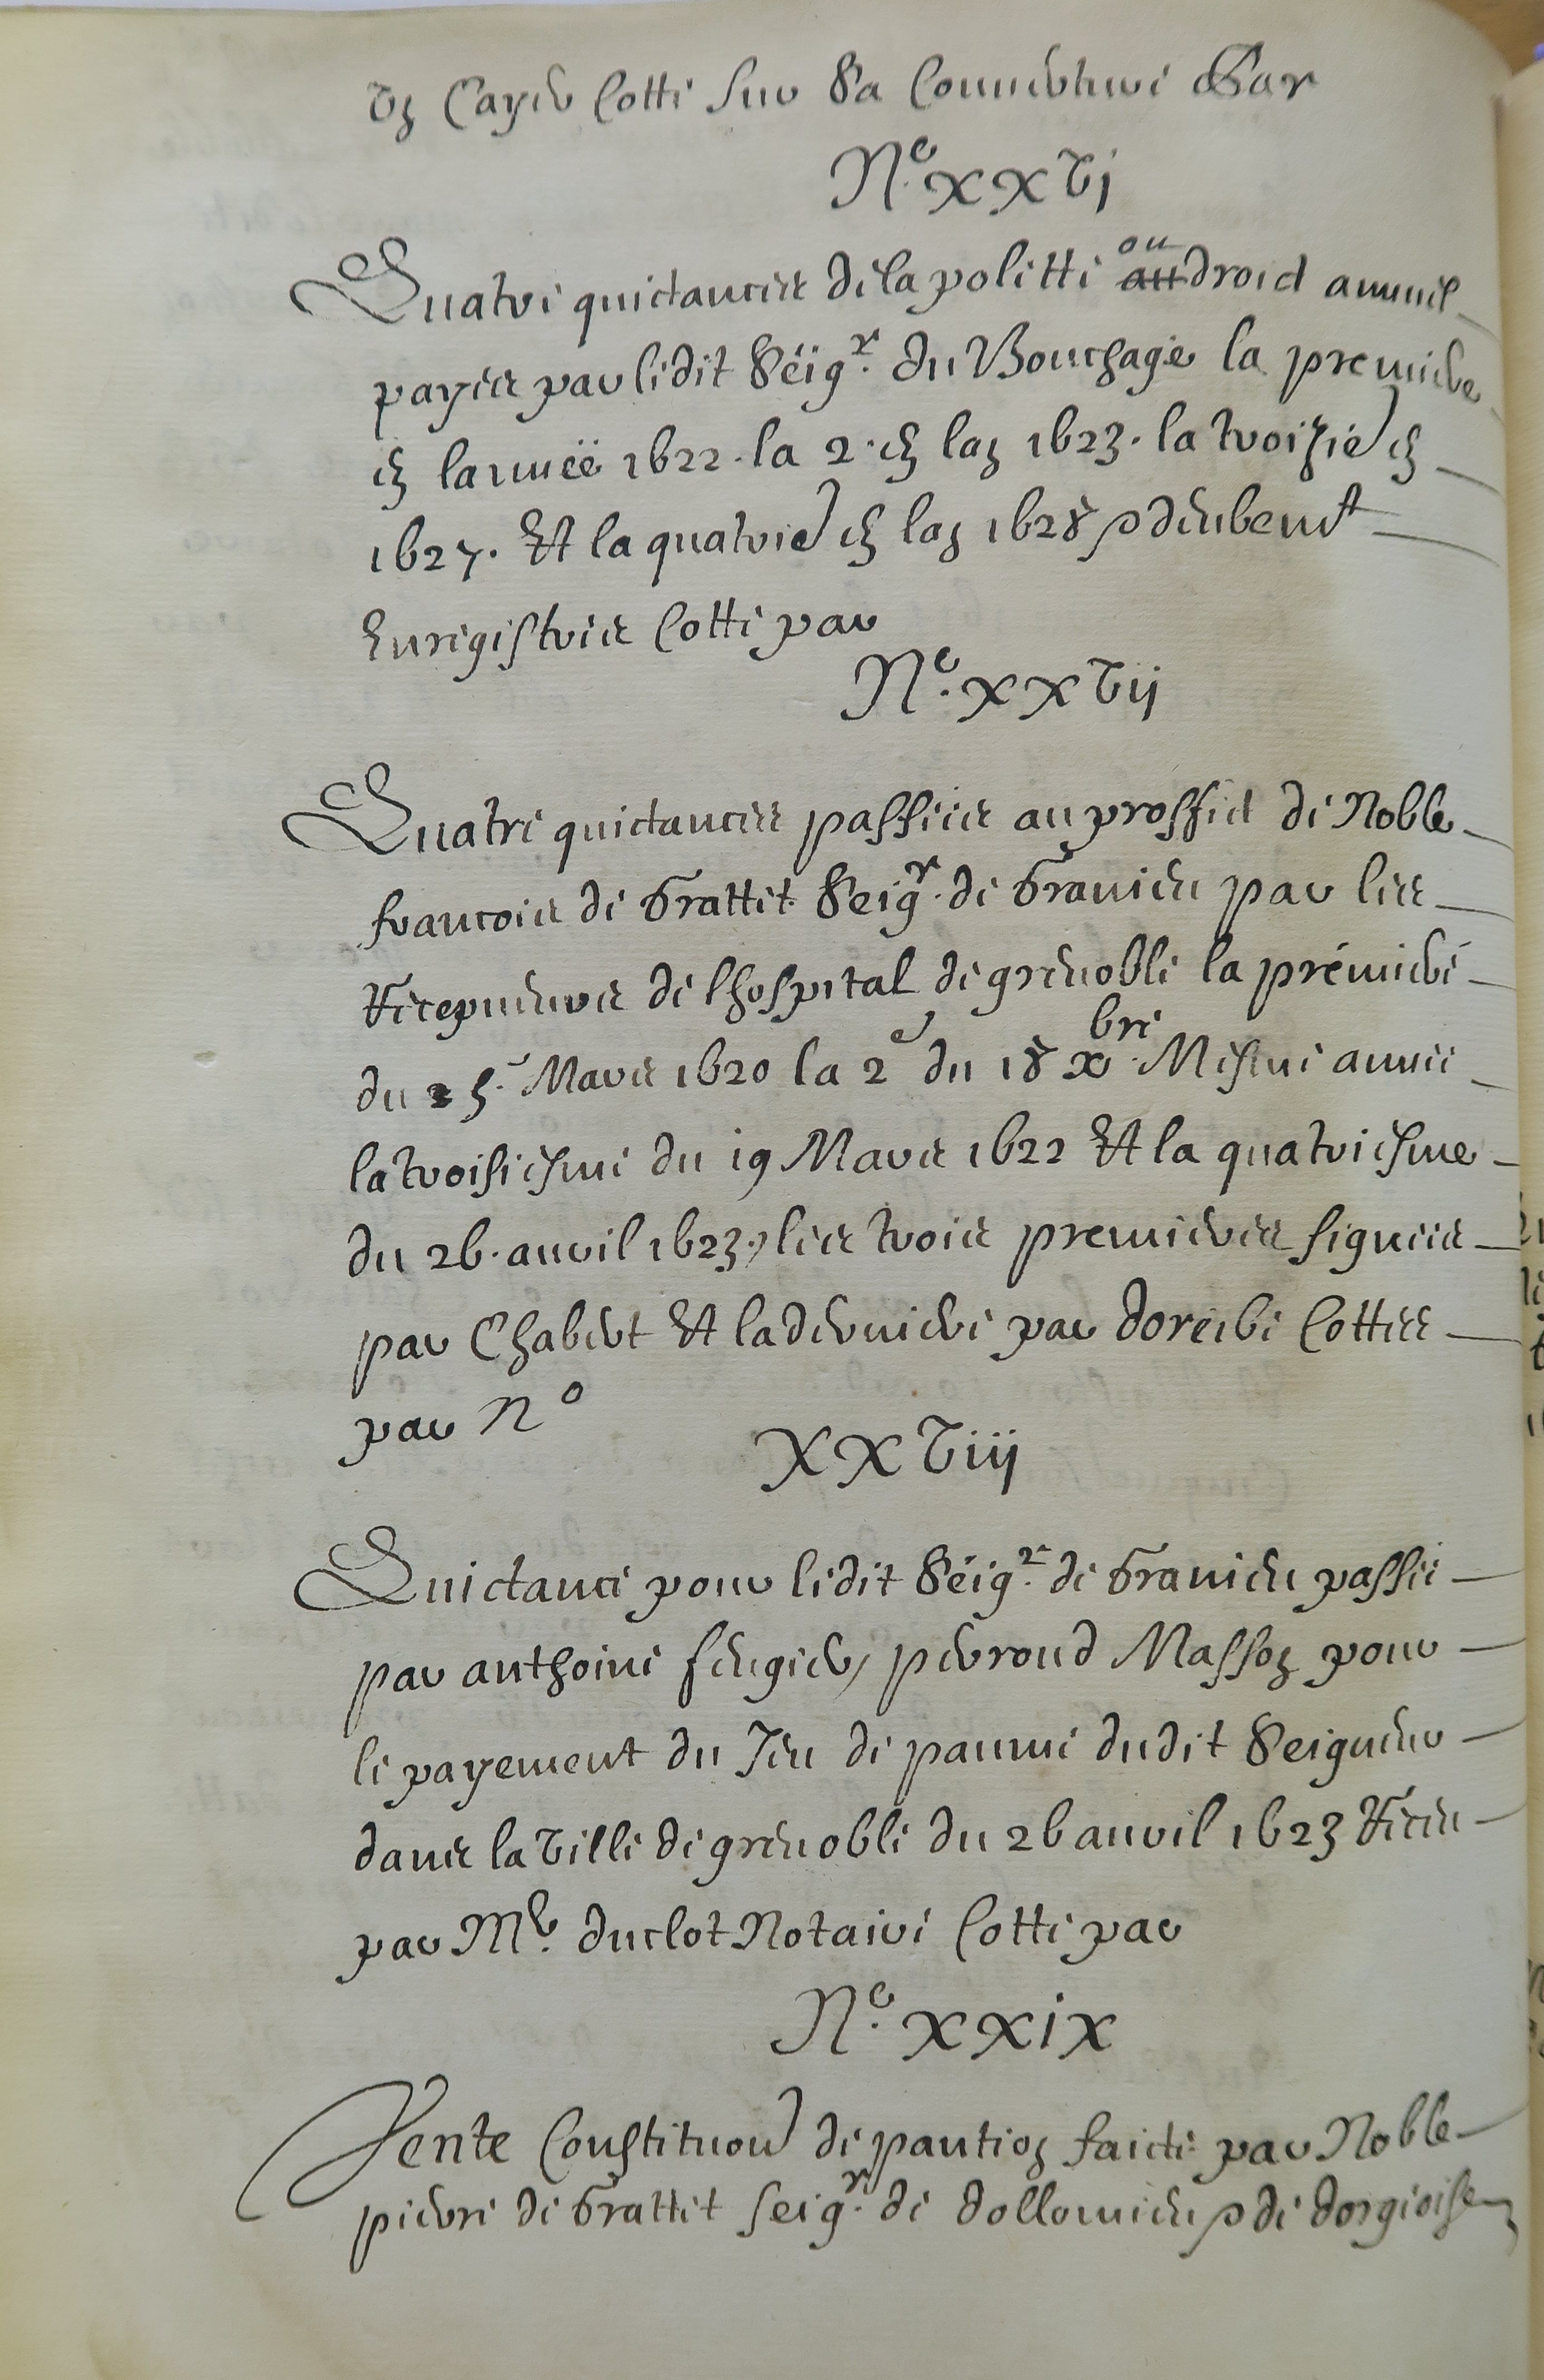 Un Cayer Cotté sur sa Couverture Par
N.o xxvj
Quatre quictances de la polette ou droict annuel
payés par ledit Seig.r du Bouchage la premiere
en lannée 1622. la 2. en lan 1623. la troizie en
1627. Et la quatrie en lan 1628 deubem.t
Enregistrées Cotté par
N.o xxvij
Quatre quictances passées au proffict de Noble
francois de Grattet Seig.r de Granieu par les
Recepveurs de lhospital de grenoble la première
du 25. Mars 1620 la 2e du 18 xbre Mesme année
la troisiesme du 19 Mars 1622 Et la quatriesme
du 26. auril 1623, les trois premieres signées
par Chabert Et la derniere par Cottées
par No
xxviij
Quictance pour ledit Séig.r de Granieu passée
par anthoine feugier, perroud Masson pour
le payement du Jeu de paume dudit Seigneur
dans la Ville de grenoble du 26 auril 1623 Receu
par M.e duclot Notaire Cotté par
N.o xxix
Vente Constituon de pantion faicte par Noble
pierre de Grattet seig.r de dollomieu de dorgeoise